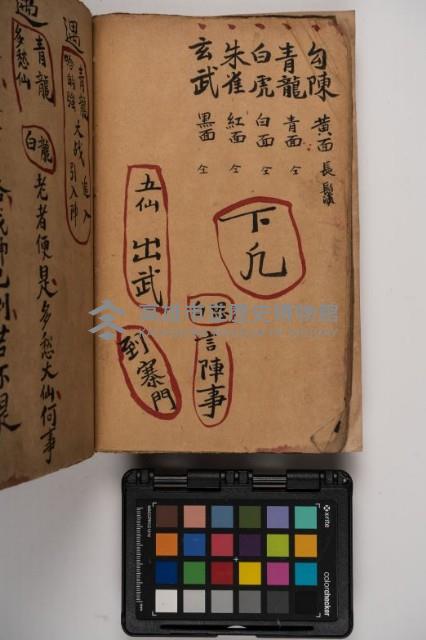 勾陳 黃面 長鬚
青龍 青面 仝
白虎 白面 仝
朱雀 紅面 仝
玄武 黑面 仝
下凡
五仙 出武
到寨門
言陣事
遇
青龍
大战
進入
引入陣
遇
青龍
多愁仙
白龍
老者便是多愁大仙何事
高雄市立歷史博物館
x-rite
colorchecker